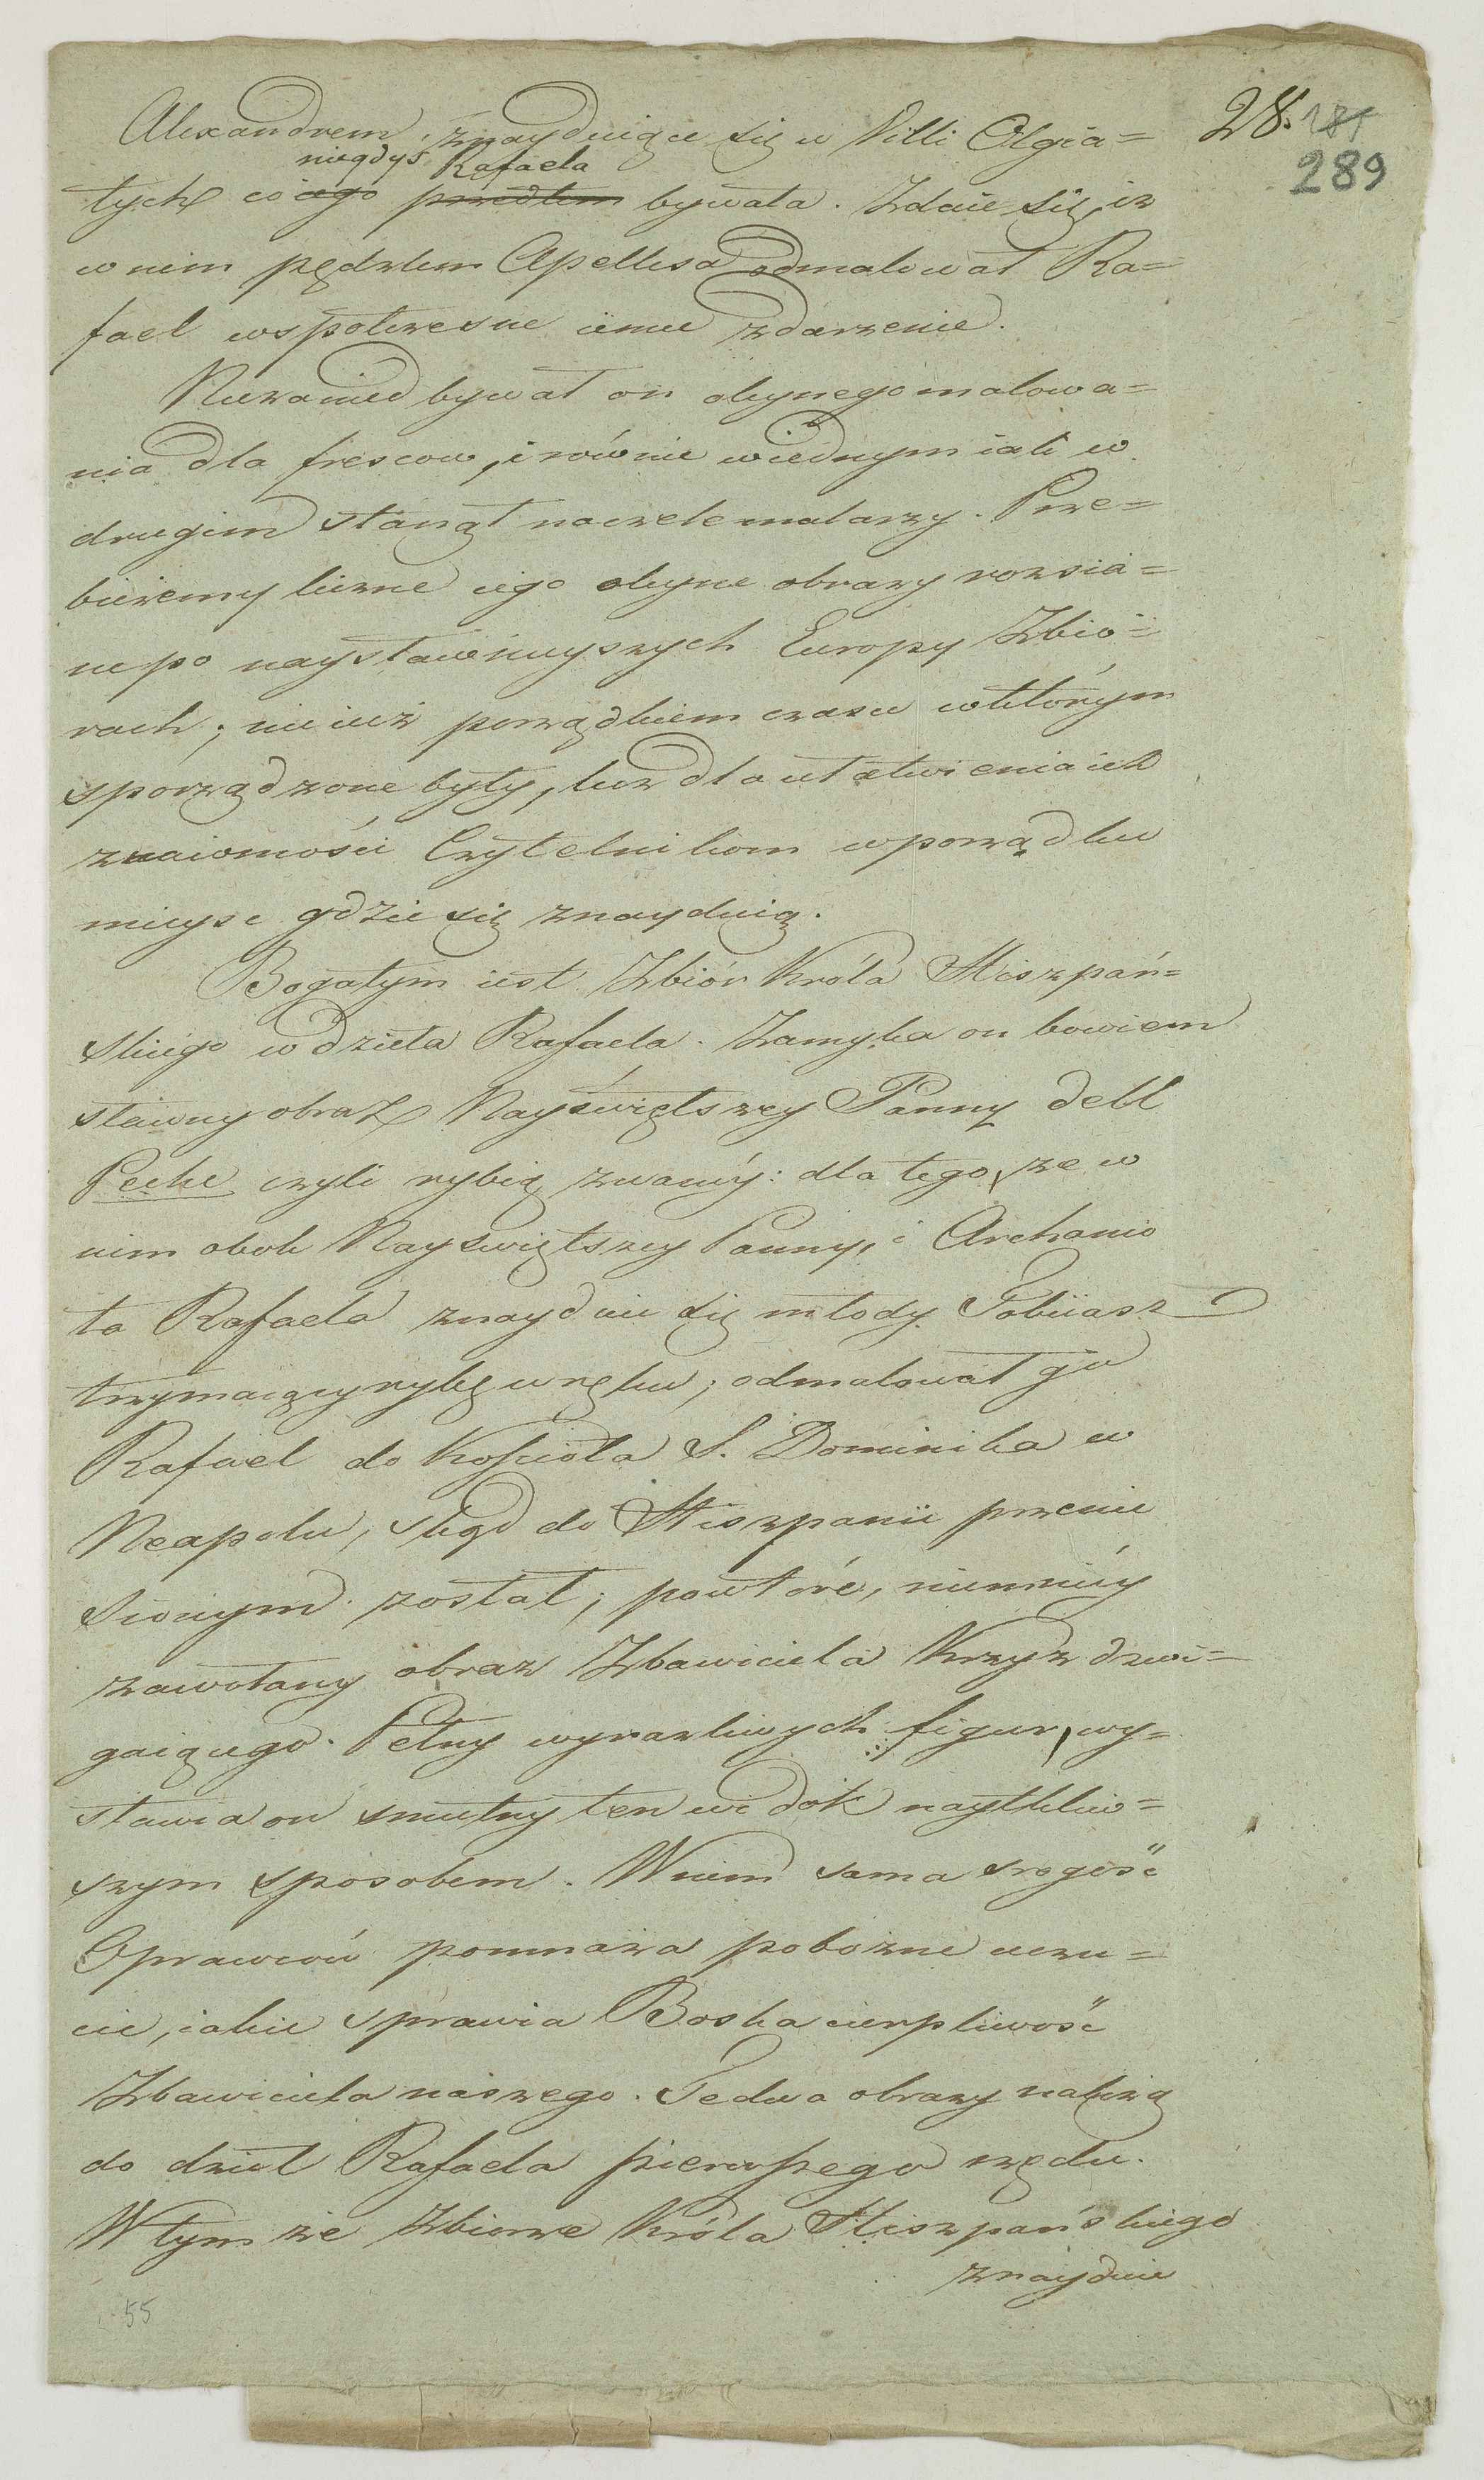 28. 181
289
Alexandrem, znayduiące się w Villi Olgia=
niegdyś Rafaela
tych co iego przedtem bywała. Zdaie się, iż
w nim pędzlem Apellesa odmalował Ra=
fael wspołczesne iemu zdarzenie.
Niezaniedbywał on oleynego malowa=
nia dla frescow, i rownie w iednym iak w
drugim stanął na czele malarzy. Prze=
bieżemy liczne iego oleyne obrazy rozsia=
ne po naysławnieyszych Europy Zbio=
rach; nie iuż porządkiem czasu w którym
sporządzone były, lecz dla ułatwienia ich
znaiomości Czytelnikom w porządku
mieysc gdzie się znayduią.
Bogatym iest Zbiór Króla Hiszpań=
skiego w dzieła Rafaela. Zamyka on bowiem
sławny obraz Nayświętszey Panny dell
Peche czyli rybią zwanéy: dla tego, że w
nim obok Nayświętszey Panny, i Archanio
ła Rafaela znayduie się młody Tobiiasz
trzymaiący rybę w ręku; odmalował go
Rafael do Kościoła S. Dominika w
Neapolu, skąd do Hiszpanii przenie
sionym został; powtóre, niemniéy
zawołany obraz Zbawiciela Krzyż dzwi=
gaiącego. Pełny wyrazliwych figur, wy=
stawia on smutny ten widok naytkliw=
szym sposobem. W nim sama srogość
Oprawców pomnaża pobożne uczu=
cie, iakie sprawia Boska cierpliwość
Zbawiciela naszego. Te dwa obrazy należą
do dzieł Rafaela pierwszego rzędu.
W tym że Zbiorze Króla Hiszpańskiego
znayduie
55